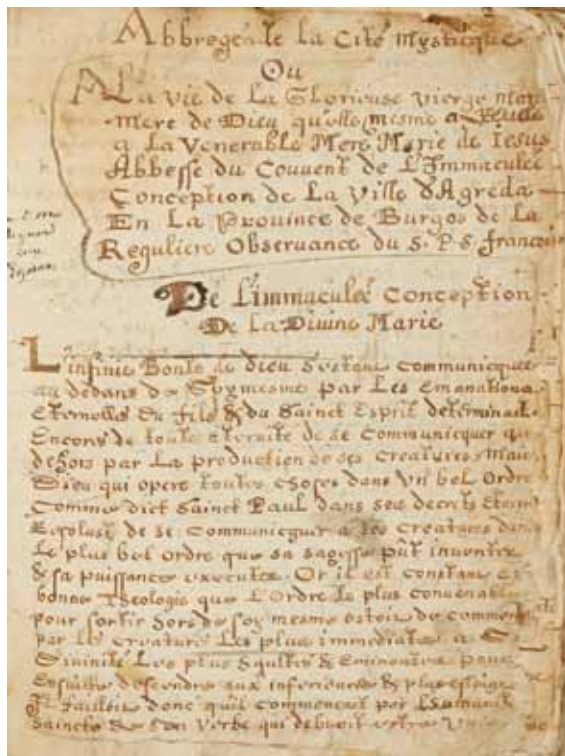 Abbregé de la Cité Mysticque
Ou
A La vie de La Glorieuse vierge
mere de Dieu qu'elle mesme a
a La Venerable Mere Marie de Iesus
Abbesse du Couvent de L'Immaculée
Conception de La Ville d'Agreda
En La Province de Burgos de La
Reguliere Observance du S. P. S. françois
De L'immaculée Conception
De La Divine Marie
L'infinie Bonté de Dieu s'estant Communicquée
au dedans de Soy mesme par Les Emanations
Eternelles du fils & du Sainct Esprit
Encore de toute eternité de se Communicquer
dehors par La production de ses Creatures Mais
Dieu qui opere toutes choses dans Vn bel Ordre
Comme dict Sainct Paul dans ses decrets
Resolust de se Communicquer a ses Creatures dans
Le plus bel ordre que sa sagesse pût inventer
& sa puissance executer. Or il est constant
bonne Theologie que L'Ordre le plus convenable
pour sortir hors de soy mesme estoit de
par les creatures Les plus immediates a
Divinité Les plus & Eminentes pour
Ensuitte descendre aux inferieures & plus
Il falloit donc qu'il commencat par
Saincte de son Verbe qui debvoit estre